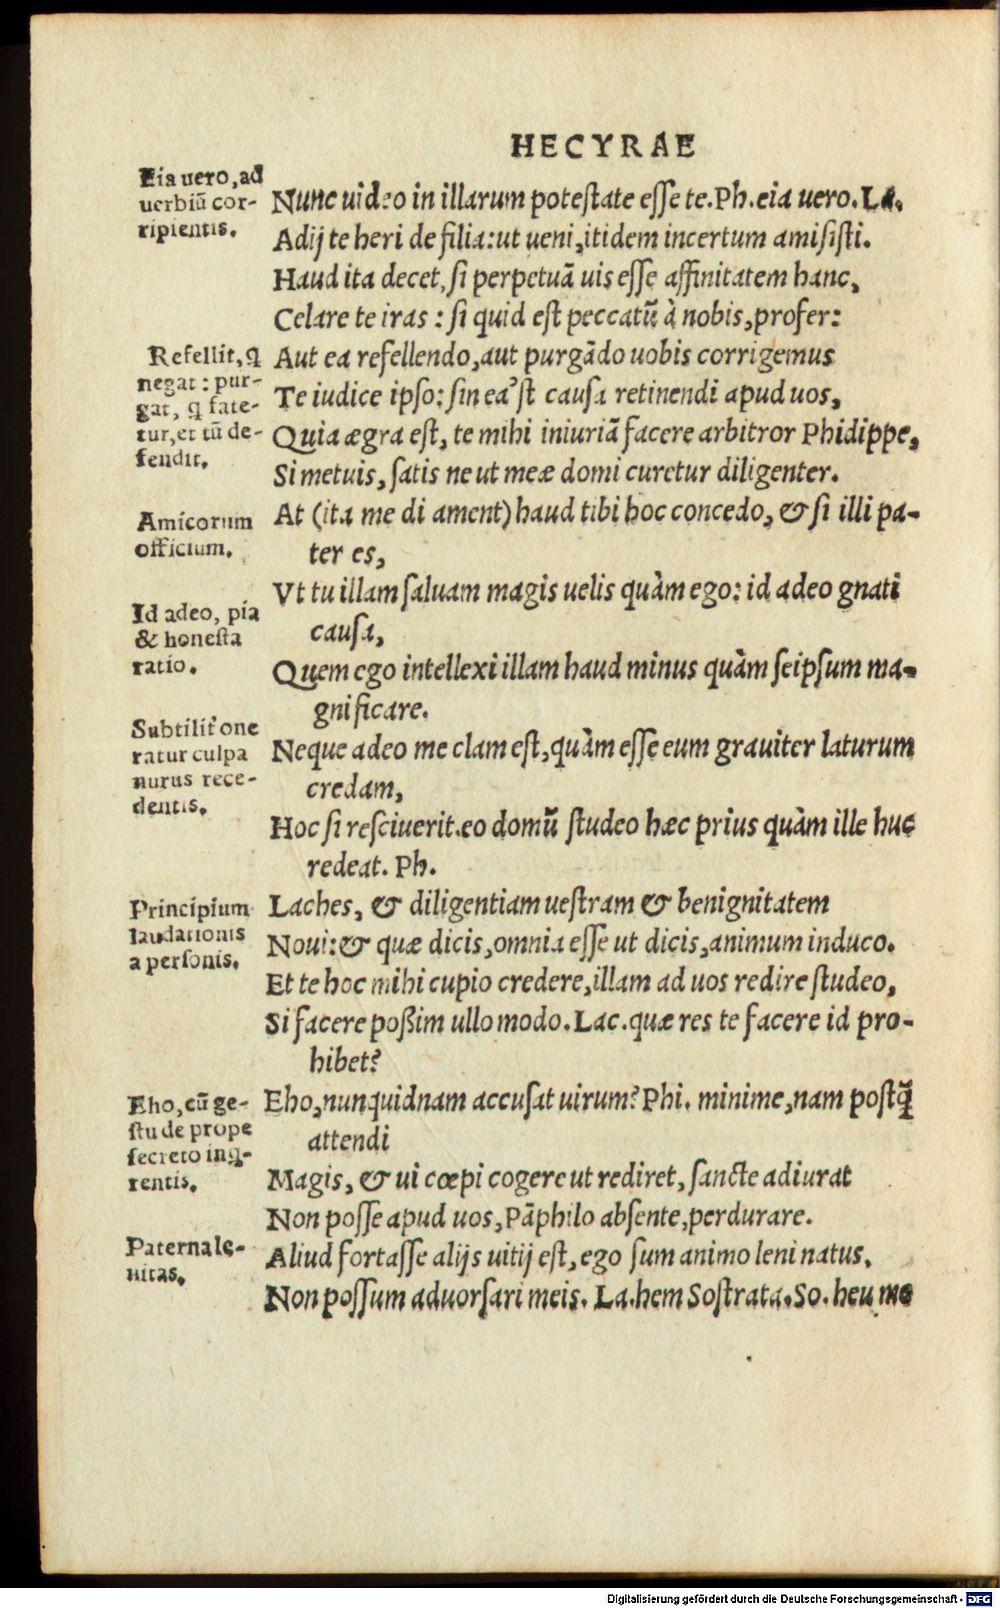 HECYRAE
Eia uero, ad
uerbiū cor-
ripientis.
Nunc uideo in illarum potestate esse te. Ph. eia uero. La.
Adij te heri de filia: ut ueni, itidem incertum amisisti.
Haud ita decet, si perpetuā uis esse affinitatem hanc,
Celare te iras : si quid est peccatū à nobis, profer:
Refellit, q
negat : pur-
gat, q fate-
tur, et tū de-
fendit.
Aut ea refellendo, aut purgādo uobis corrigemus
Te iudice ipso: sin ea'st causa retinendi apud uos,
Quia ægra est, te mihi iniuriā facere arbitror Phidippe,
Si metuis, satis ne ut meæ domi curetur diligenter.
Amicorum
officium.
At (ita me di ament) haud tibi hoc concedo, & si illi pa-
ter es,
Vt tu illam saluam magis uelis quàm ego: id adeo gnati
causa,
Id adeo, pia
& honesta
ratio.
Quem ego intellexi illam haud minus quàm seipsum ma-
gnificare.
Subtilit' one
ratur culpa
nurus rece-
dentis.
Neque adeo me clam est, quàm esse eum grauiter laturum
credam,
Hoc si resciuerit. eo domū studeo hæc prius quàm ille huc
redeat. Ph.
Principium
laudationis
a personis.
Laches, & diligentiam uestram & benignitatem
Noui: & quæ dicis, omnia esse ut dicis, animum induco.
Et te hoc mihi cupio credere, illam ad uos redire studeo,
Si facere poßim ullo modo. Lac. quæ res te facere id pro-
hibet?
Eho, cū ge-
stu de prope
secreto inq-
rentis.
Eho, nunquidnam accusat uirum? Phi. minime, nam postq̄
attendi
Magis, & ui cœpi cogere ut rediret, sancte adiurat
Non posse apud uos, Pāphilo absente, perdurare.
Paternale-
nitas.
Aliud fortasse alijs uitij est, ego sum animo leni natus.
Non possum aduorsari meis. La. hem Sostrata. So. heu me
Digitalisierung gefördert durch die Deutsche Forschungsgemeinschaft - DFG